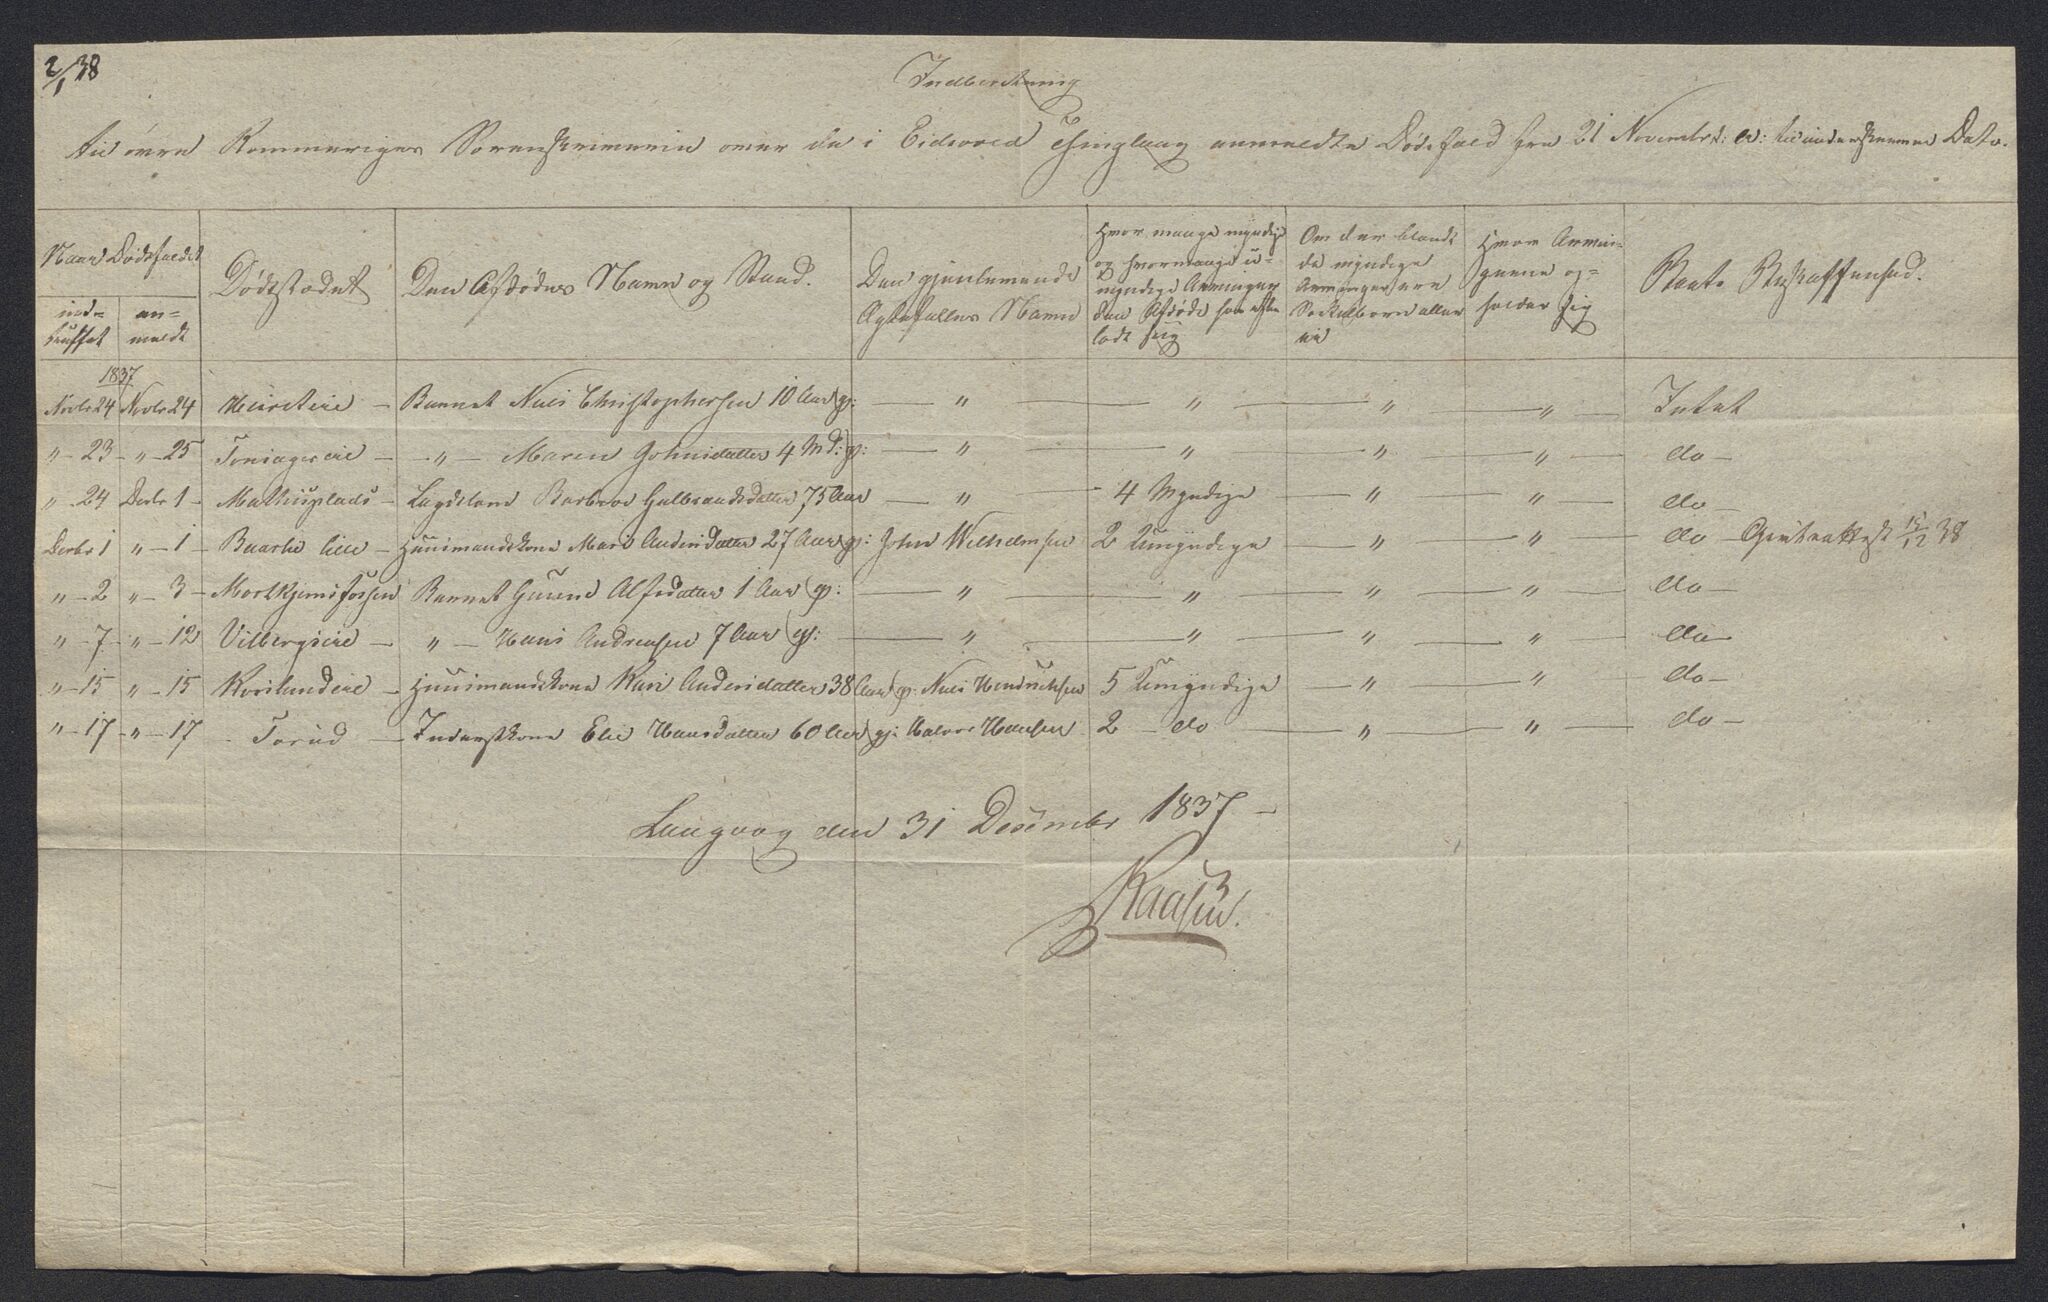 2/1 38
Indberetning
til øvre Rommeriges Sorenskriverie over de i Eidsvold Thinglaug anmeldte Dødsfald fra 21 Novembr d: A: til underskrevne Dato.
Naar Dødsfaldet
ind-
truffet
an-
meldt
Dødsstædet
Den Afdødes Navn og Stand.
Den gjenlevende
Ægtefælles Navn
Hvor mange myndige
og hvormange u-
myndige Arvinger
den Afdøde har efter
ladt sig
Om der blandt
de myndige
Arvinger ere
Søskubørn eller
ei
Hvor Arvin-
gerne op-
holder sig
Boets Beskaffenhed.
1837
Novbr 24 Novbr 24 — Barnet Niels Christophersen 10 Aar g: — " — " — " — " — Intet
" - 23 - " - 25 — " — Maren Johnsdatter 4 Md: g: — " — " — " — " — do —
" - 24 Decbr 1 - Mathisplads - Lægdslem Barbroe Gulbrandsdatter 75 Aar — " — 4 Myndige — " — " — do —
Decbr 1 " - 1 - Baarlie Eie - Huusmandskone Mari Andersdatter 27 Aar g: John Wilhelmsen 2 Umyndige — " — " — do — 15/12 38
" - 2 " - 3 - Morskjernsfossen Barnet Alfsdatter 1 Aar g: — " — " — " — " — do —
" - 7 - " - 12 Vilbergseie — " — Hans Andreasen 7 Aar g: — " — " — " — " — do —
" - 15 " - 15 Roslundeie — Huusmandskone Kari Andersdatter 38 Aar g: Niels Hendrichsen 5 Umyndige — " — " — do —
" - 17 - " - 17 - Torud — Inderstkone Elie Hansdatter 60 Aar g: Halvor Hansen 2 — do — " — " — do —
Langvag den 31 December 1837 —
Raasen.